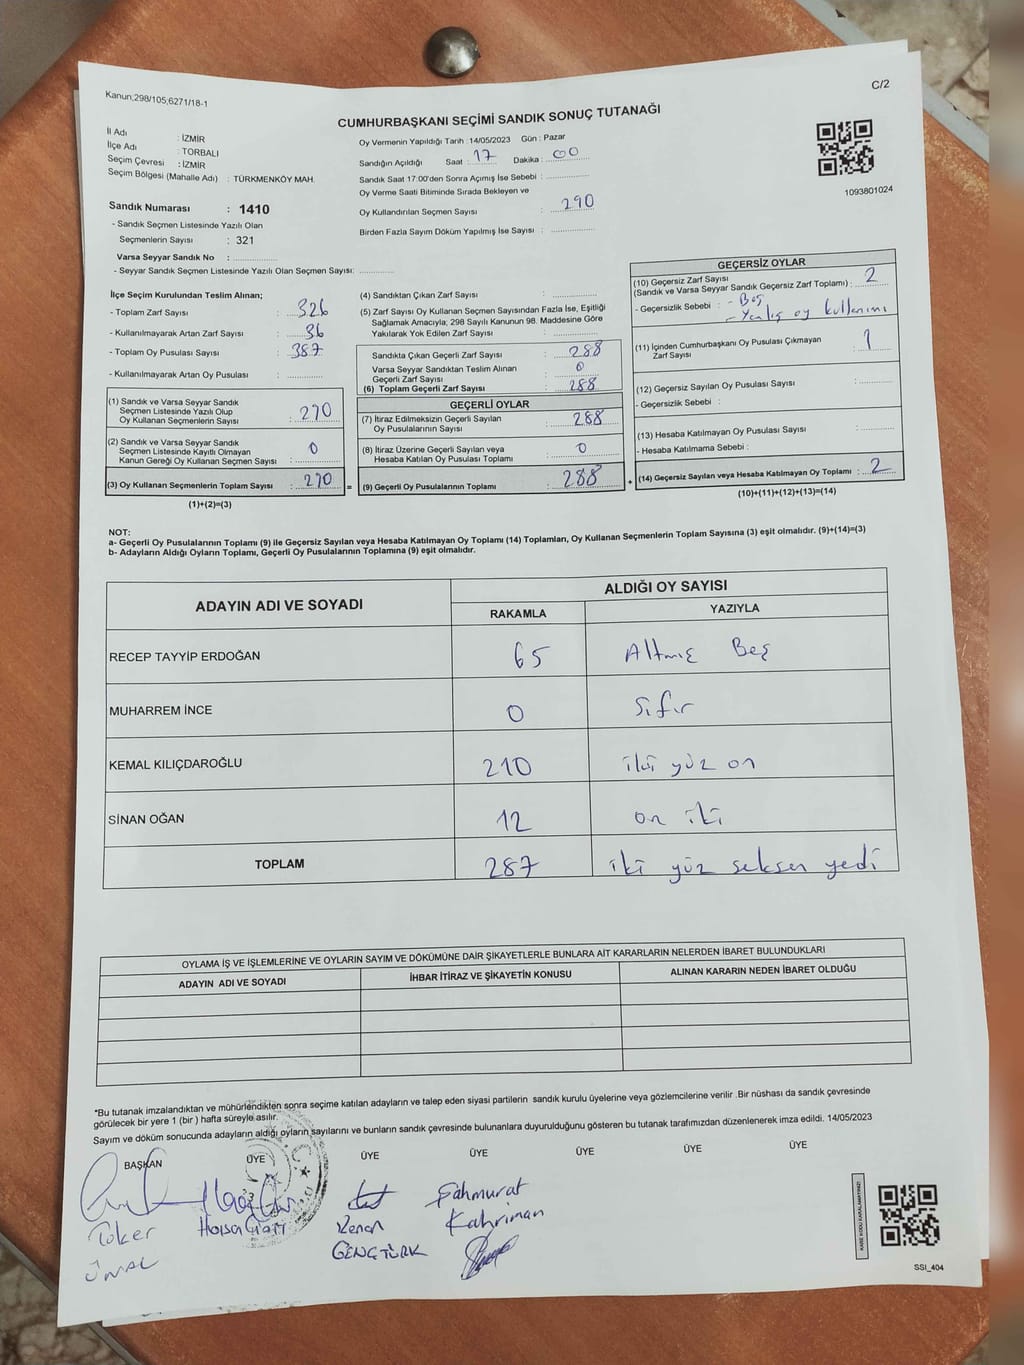 Kanun;298/105;6271/18-1
C/2
CUMHURBAŞKANI SEÇİMİ SANDIK SONUÇ TUTANAĞI
İl Adı : İZMİR
İlçe Adı : TORBALI
Seçim Çevresi : İZMİR
Seçim Bölgesi (Mahalle Adı) : TÜRKMENKÖY MAH.
Oy Vermenin Yapıldığı Tarih :14/05/2023 Gün : Pazar
Sandığın Açıldığı Saat : 17 Dakika : 00
Sandık Saat 17:00'den Sonra Açımış İse Sebebi :
Oy Verme Saati Bitiminde Sırada Bekleyen ve
Oy Kullandırılan Seçmen Sayısı : 290
Birden Fazla Sayım Döküm Yapılmış İse Sayısı :
1093801024
Sandık Numarası : 1410
- Sandık Seçmen Listesinde Yazılı Olan
Seçmenlerin Sayısı : 321
Varsa Seyyar Sandık No :
- Seyyar Sandık Seçmen Listesinde Yazılı Olan Seçmen Sayısı:
İlçe Seçim Kurulundan Teslim Alınan;
- Toplam Zarf Sayısı : 326
- Kullanılmayarak Artan Zarf Sayısı : 36
- Toplam Oy Pusulası Sayısı : 387
- Kullanılmayarak Artan Oy Pusulası :
(1) Sandık ve Varsa Seyyar Sandık
Seçmen Listesinde Yazılı Olup
Oy Kullanan Seçmenlerin Sayısı : 290
(2) Sandık ve Varsa Seyyar Sandık
Seçmen Listesinde Kayıtlı Olmayan
Kanun Gereği Oy Kullanan Seçmen Sayısı : 0
(3) Oy Kullanan Seçmenlerin Toplam Sayısı : 290
(1)+(2)=(3)
(4) Sandıktan Çıkan Zarf Sayısı :
(5) Zarf Sayısı Oy Kullanan Seçmen Sayısından Fazla İse, Eşitliği
Sağlamak Amacıyla; 298 Sayılı Kanunun 98. Maddesine Göre
Yakılarak Yok Edilen Zarf Sayısı :
Sandıkta Çıkan Geçerli Zarf Sayısı : 288
Varsa Seyyar Sandıktan Teslim Alınan
Geçerli Zarf Sayısı : 0
(6) Toplam Geçerli Zarf Sayısı : 288
GEÇERLİ OYLAR
(7) İtiraz Edilmeksizin Geçerli Sayılan
Oy Pusulalarının Sayısı : 288
(8) İtiraz Üzerine Geçerli Sayılan veya
Hesaba Katılan Oy Pusulası Toplamı : 0
= (9) Geçerli Oy Pusulalarının Toplamı : 288
GEÇERSİZ OYLAR
(10) Geçersiz Zarf Sayısı
(Sandık ve Varsa Seyyar Sandık Geçersiz Zarf Toplamı) : 2
- Geçersizlik Sebebi : - Boş
- Yanlış oy kullanımı
(11) İçinden Cumhurbaşkanı Oy Pusulası Çıkmayan
Zarf Sayısı : 1
(12) Geçersiz Sayılan Oy Pusulası Sayısı :
- Geçersizlik Sebebi :
(13) Hesaba Katılmayan Oy Pusulası Sayısı :
- Hesaba Katılmama Sebebi :
+ (14) Geçersiz Sayılan veya Hesaba Katılmayan Oy Toplamı : 2
(10)+(11)+(12)+(13)=(14)
NOT:
a- Geçerli Oy Pusulalarının Toplamı (9) ile Geçersiz Sayılan veya Hesaba Katılmayan Oy Toplamı (14) Toplamları, Oy Kullanan Seçmenlerin Toplam Sayısına (3) eşit olmalıdır. (9)+(14)=(3)
b- Adayların Aldığı Oyların Toplamı, Geçerli Oy Pusulalarının Toplamına (9) eşit olmalıdır.
ADAYIN ADI VE SOYADI ALDIĞI OY SAYISI
RAKAMLA YAZIYLA
RECEP TAYYİP ERDOĞAN 65 Altmış Beş
MUHARREM İNCE 0 Sıfır
KEMAL KILIÇDAROĞLU 210 iki yüz on
SİNAN OĞAN 12 on iki
TOPLAM 287 iki yüz seksen yedi
OYLAMA İŞ VE İŞLEMLERİNE VE OYLARIN SAYIM VE DÖKÜMÜNE DAİR ŞİKAYETLERLE BUNLARA AİT KARARLARIN NELERDEN İBARET BULUNDUKLARI
ADAYIN ADI VE SOYADI İHBAR İTİRAZ VE ŞİKAYETİN KONUSU ALINAN KARARIN NEDEN İBARET OLDUĞU
*Bu tutanak imzalandıktan ve mühürlendikten sonra seçime katılan adayların ve talep eden siyasi partilerin sandık kurulu üyelerine veya gözlemcilerine verilir .Bir nüshası da sandık çevresinde
görülecek bir yere 1 (bir ) hafta süreyle asılır.
Sayım ve döküm sonucunda adayların aldığı oyların sayılarını ve bunların sandık çevresinde bulunanlara duyurulduğunu gösteren bu tutanak tarafımızdan düzenlenerek imza edildi. 14/05/2023
BAŞKAN ÜYE ÜYE ÜYE ÜYE ÜYE ÜYE
Toker
ÜNAL
Kenan
GENÇTÜRK
Şahmurat
Kahriman
KARE KODU KARALAMAYINIZ!
SSI_404